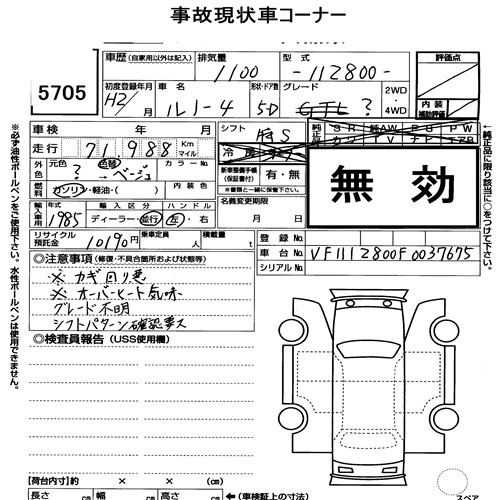 事故現状車コーナー
5705
車歴 (自家用以外は記入) 排気量 1100 型式 -112800- 評価点
初度登録年月 H2/ 車名 ルノー4 形状・ドア数 5D グレード GTL ? 2WD・4WD 内装 補助評価
車検 年 月 シフト F4S
走行 71,988 Km マイル
外色 元色 ? 色替 → ベージュ カラーNo.
新車整備手帳(保証書付) 有・無
※書類と一緒に保管して下さい。
燃料 ガソリン・軽油・( ) 内装色
名義変更期限 月 日
無効
輸入車用 1985 輸入区分 ディーラー・並行 ハンドル 左・右
リサイクル預託金 10190円 乗車定員 人 積載量 t
登録No.
車台No. VF1112800F0037675
シリアルNo.
◎注意事項 (修復・不具合箇所および状態等)
※ カギ回り悪
※ オーバーヒート気味
グレード不明
シフトパターン確認要ス
◎検査員報告 (USS使用欄)
【荷台内寸】約 × × cm
長さ cm 幅 cm 高さ cm ←(車検証上の寸法)
スペア
※必ず油性ボールペンをご使用下さい。水性ボールペンは使用できません。
←純正品に限り該当に○をつけて下さい